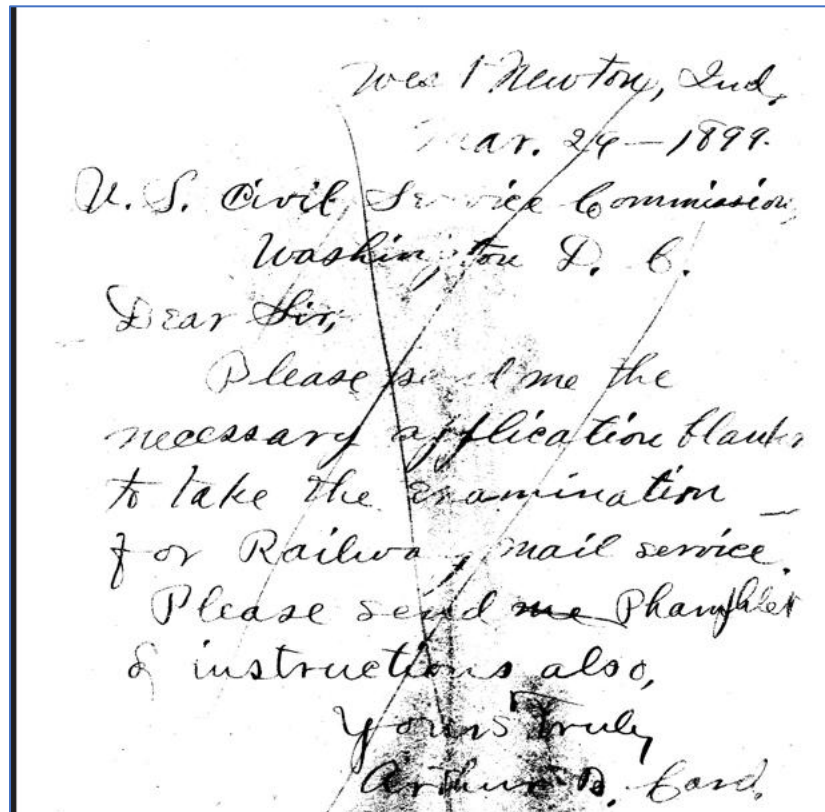 West Newton, Ind.
Mar. 24 — 1899.
U. S. Civil Service Commission,
Washington D. C.
Dear Sir,
Please send me the
necessary application blanks
to take the examination
for Railway mail service.
Please send me Phamphlet
of instructions also,
Yours Truly
Arthur B. Card.